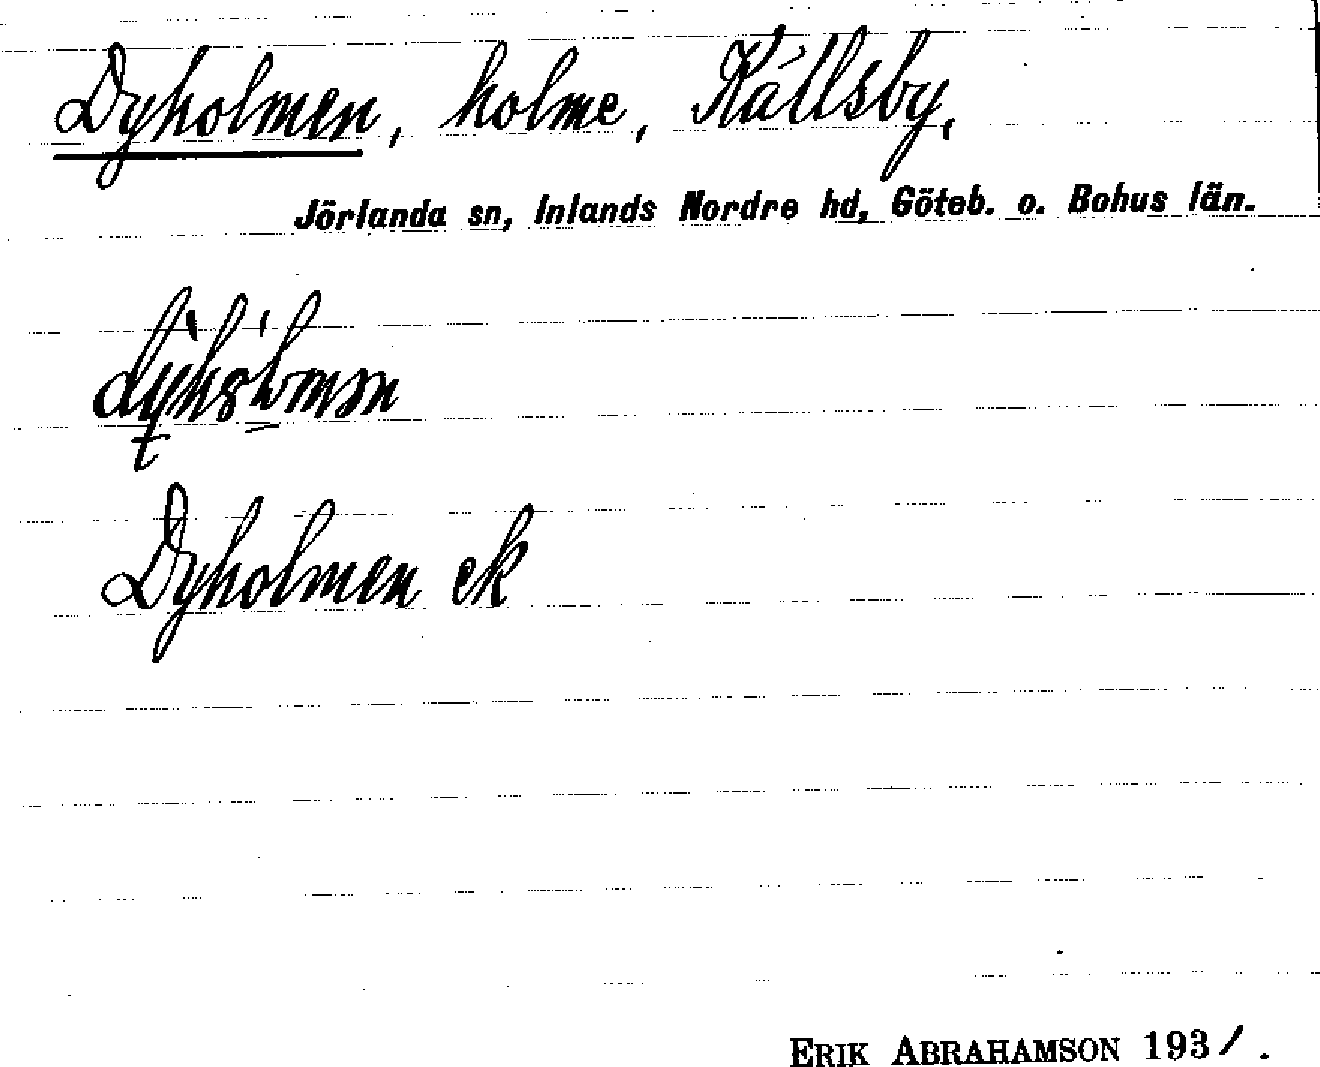 Dyholmen, holme, Källsby,
Jörlanda sn, Inlands Nordre hd, Göteb. o. Bohus län.
Dyholmen ek
ERIK ABRAHAMSON 1931.